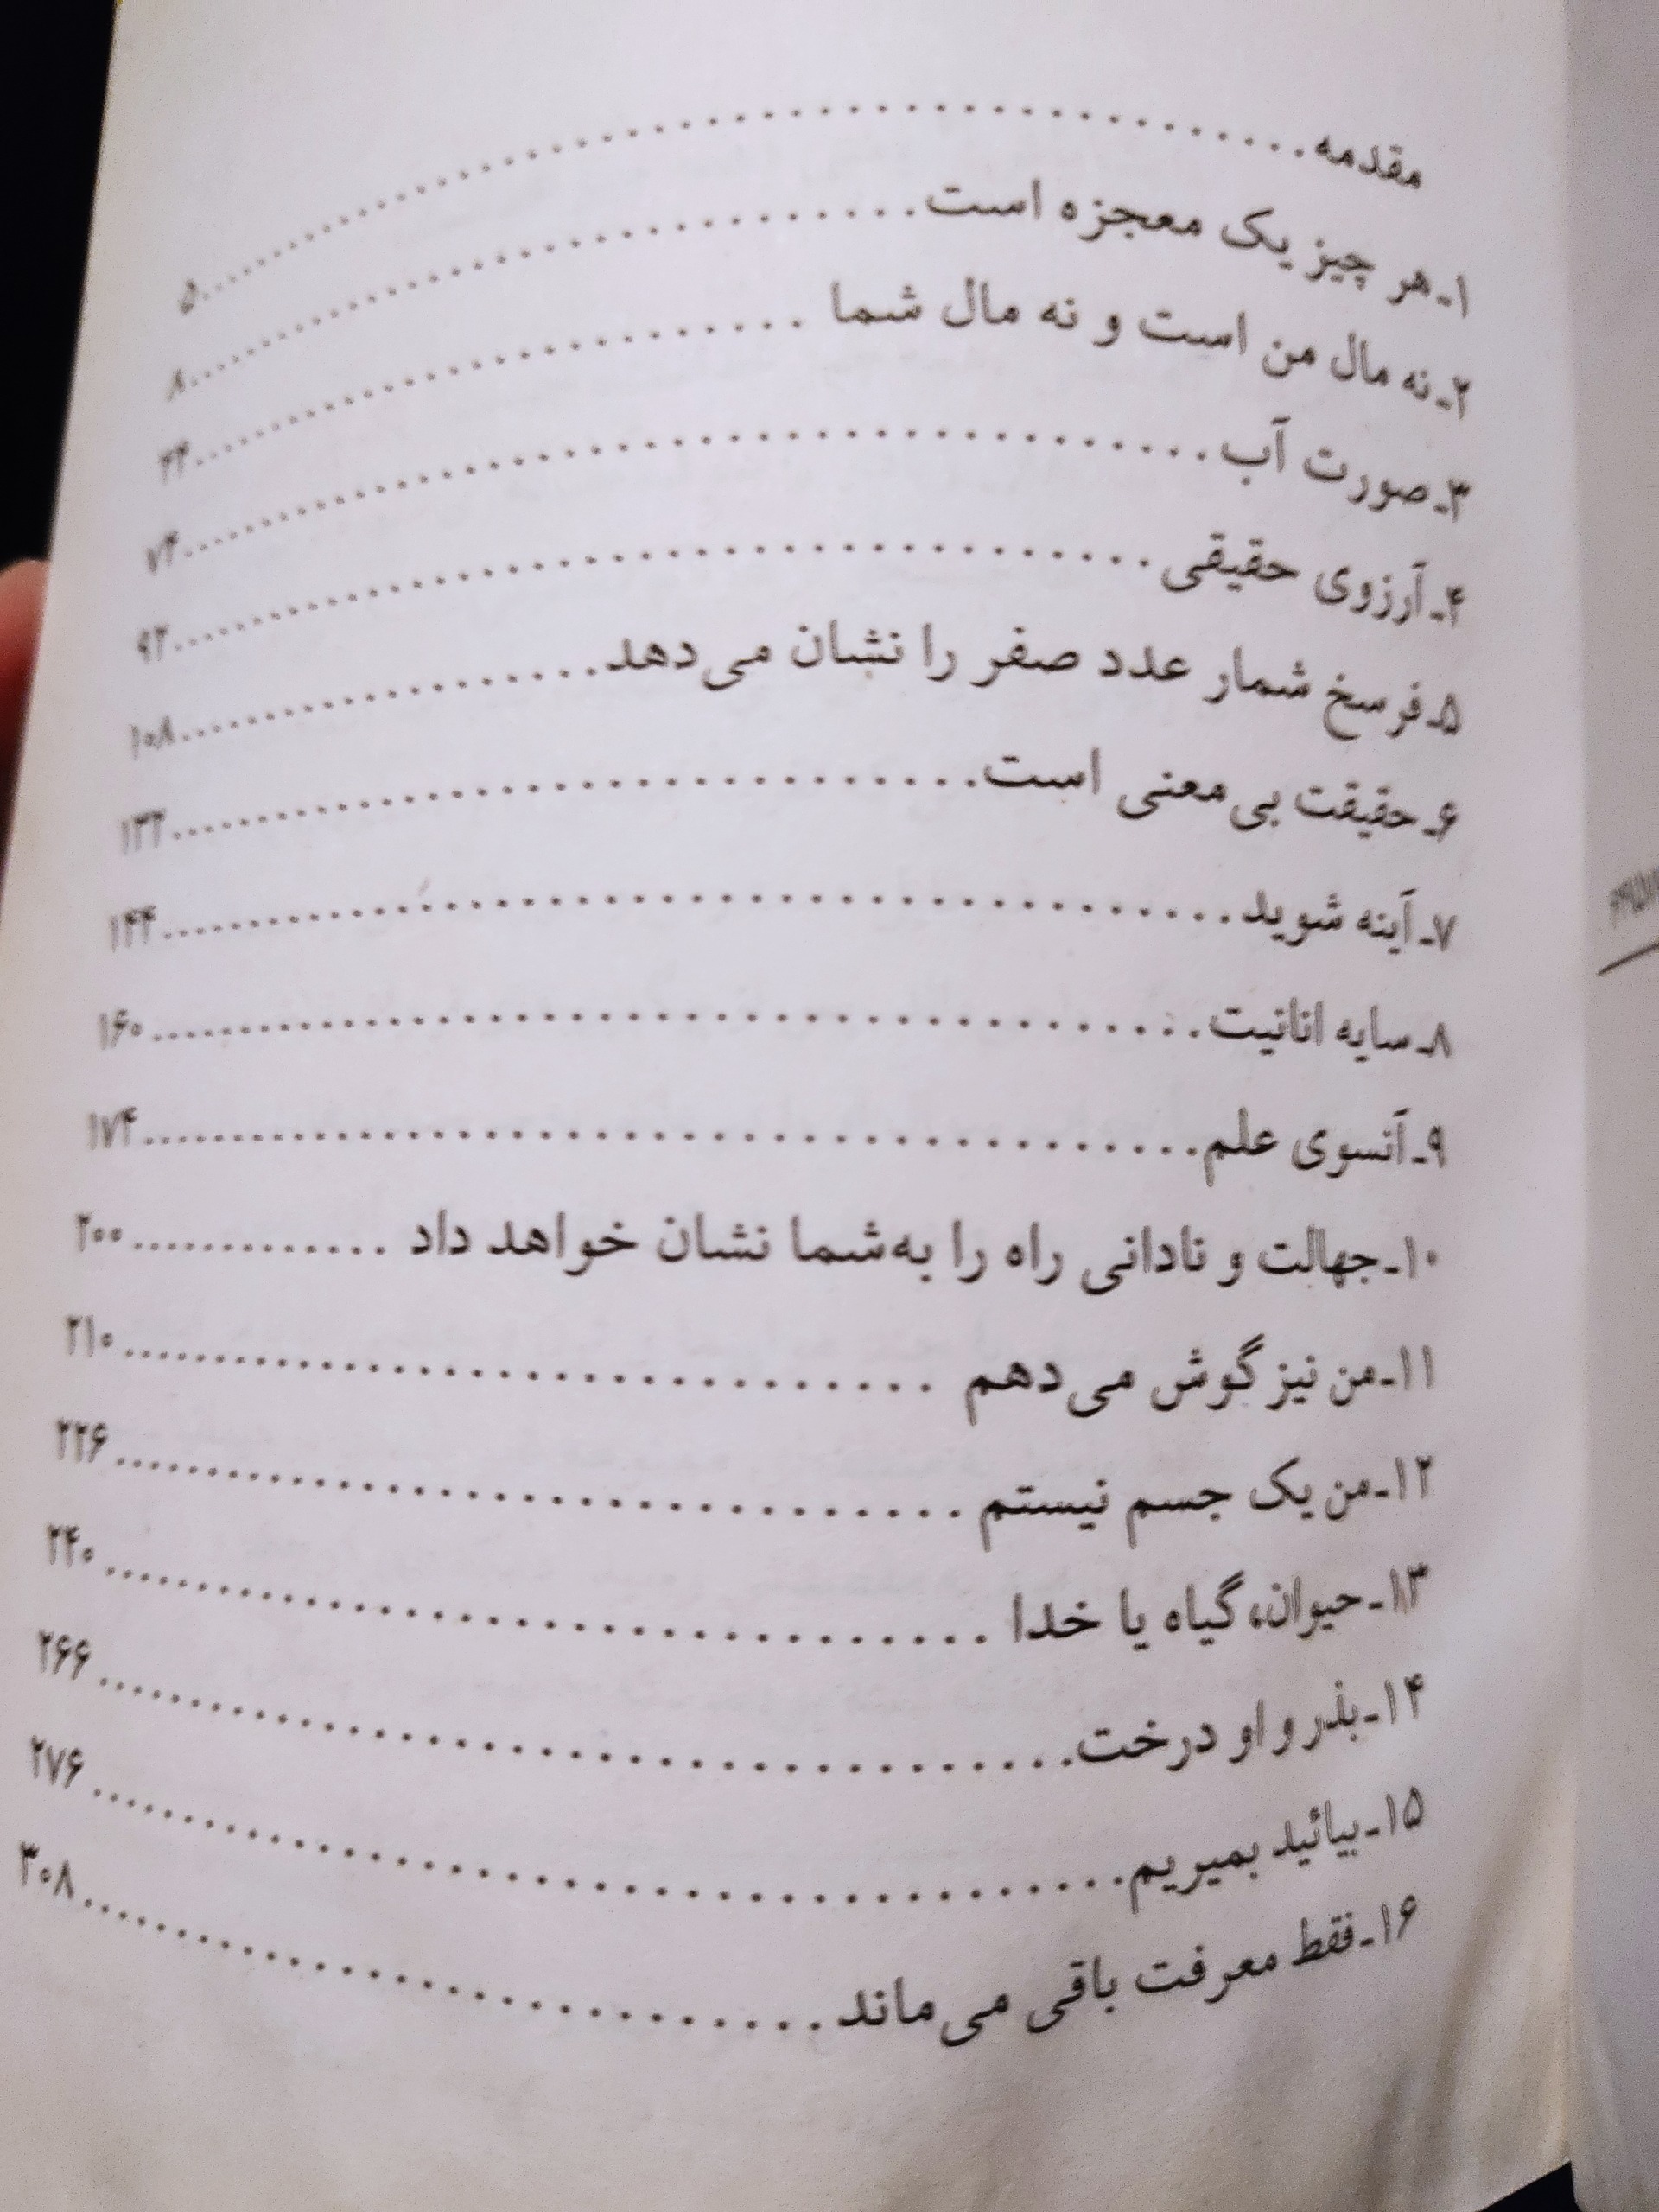 مقدمه........................................۵
۱ـ هر چیز یک معجزه است........................................۸
۲ـ نه مال من است و نه مال شما ........................................۴۴
۳ـ صورت آب........................................۷۴
۴ـ آرزوی حقیقی........................................۹۲
۵ـ فرسخ شمار عدد صفر را نشان می‌دهد........................................۱۰۸
۶ـ حقیقت بی‌معنی است........................................۱۳۲
۷ـ آینه شوید........................................۱۴۴
۸ـ سایه انانیت........................................۱۶۰
۹ـ آنسوی علم........................................۱۷۴
۱۰ـ جهالت و نادانی راه را به‌شما نشان خواهد داد ........................................۲۰۰
۱۱ـ من نیز گوش می‌دهم ........................................۲۱۰
۱۲ـ من یک جسم نیستم ........................................۲۲۶
۱۳ـ حیوان، گیاه یا خدا ........................................۲۴۰
۱۴ـ بذر و او درخت........................................۲۶۶
۱۵ـ بیائید بمیریم........................................۲۷۶
۱۶ـ فقط معرفت باقی می‌ماند........................................۳۰۸